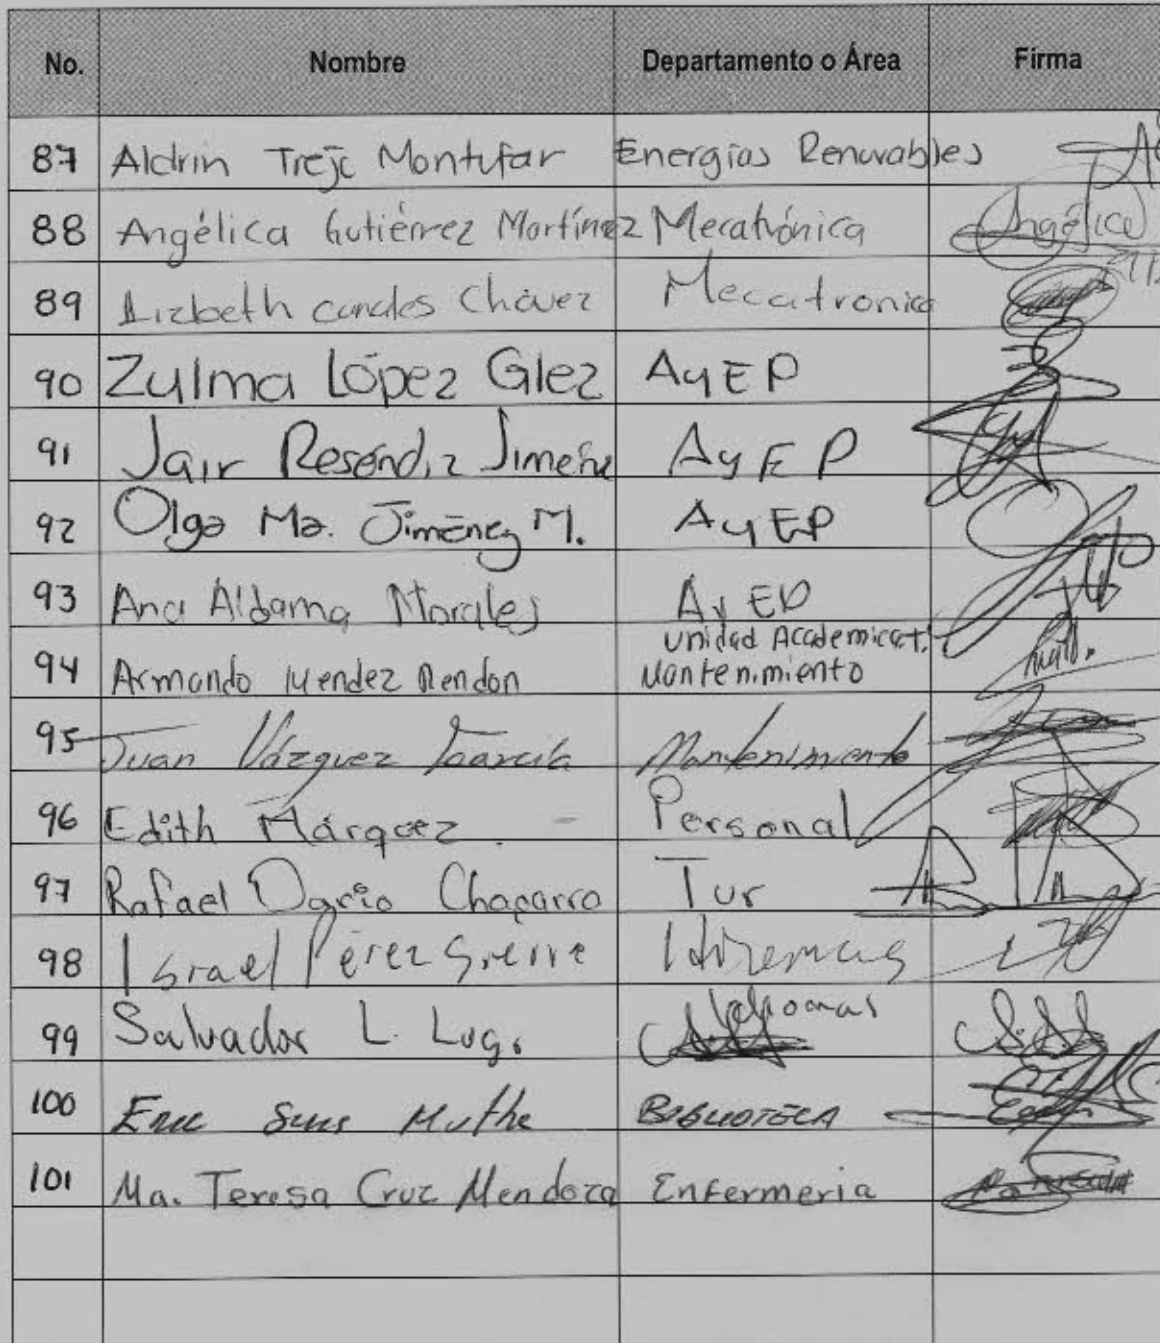 No. Nombre Departamento o Área Firma
87 Aldrin Trejo Montufar Energías Renovables
88 Angélica Gutiérrez Martínez Mecatrónica Angélica
89 Lizbeth Chávez Mecatronica
90 Zulma López Glez AyEP
91 Jair Reséndiz Jiméne AyEP
92 Olga Ma. Jiménez M. AyEP
93 Ana Aldama Morales AyEP
Unidad Academica
94 Armando Mendez Rendon Mantenimiento
95 Juan Vázquez García Mantenimiento
96 Edith Márquez Personal
97 Rafael Osorio Chaparro Tur
98 Israel Pérez
99 Salvador L. Lugo Idiomas
100 BIBLIOTECA
101 Ma. Teresa Cruz Mendoza Enfermeria